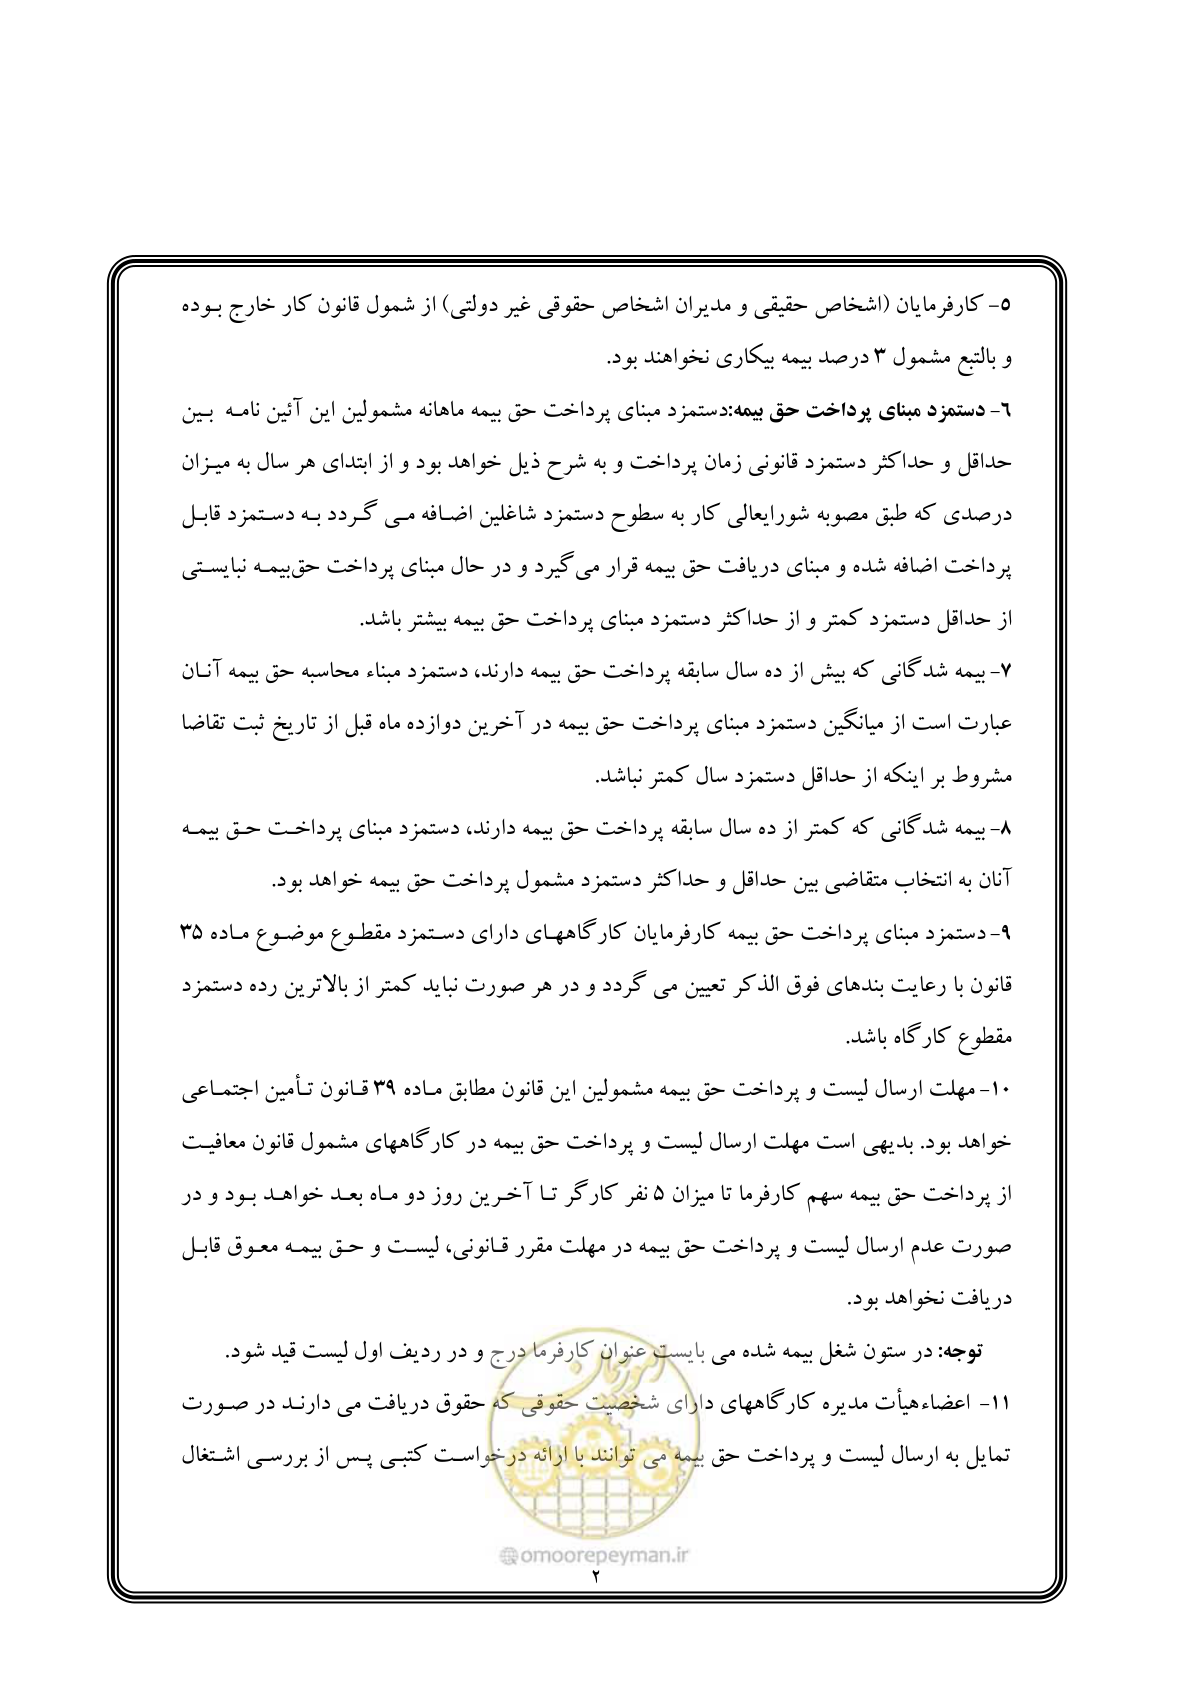 ۵- کارفرمایان (اشخاص حقیقی و مدیران اشخاص حقوقی غیر دولتی) از شمول قانون کار خارج بوده
و بالتبع مشمول ۳ درصد بیمه بیکاری نخواهند بود.
۶- دستمزد مبنای پرداخت حق بیمه:دستمزد مبنای پرداخت حق بیمه ماهانه مشمولین این آئین نامه بین
حداقل و حداکثر دستمزد قانونی زمان پرداخت و به شرح ذیل خواهد بود و از ابتدای هر سال به میزان
درصدی که طبق مصوبه شورایعالی کار به سطوح دستمزد شاغلین اضافه می گردد به دستمزد قابل
پرداخت اضافه شده و مبنای دریافت حق بیمه قرار می‌گیرد و در حال مبنای پرداخت حق‌بیمه نبایستی
از حداقل دستمزد کمتر و از حداکثر دستمزد مبنای پرداخت حق بیمه بیشتر باشد.
۷- بیمه شدگانی که بیش از ده سال سابقه پرداخت حق بیمه دارند، دستمزد مبناء محاسبه حق بیمه آنان
عبارت است از میانگین دستمزد مبنای پرداخت حق بیمه در آخرین دوازده ماه قبل از تاریخ ثبت تقاضا
مشروط بر اینکه از حداقل دستمزد سال کمتر نباشد.
۸- بیمه شدگانی که کمتر از ده سال سابقه پرداخت حق بیمه دارند، دستمزد مبنای پرداخت حق بیمه
آنان به انتخاب متقاضی بین حداقل و حداکثر دستمزد مشمول پرداخت حق بیمه خواهد بود.
۹- دستمزد مبنای پرداخت حق بیمه کارفرمایان کارگاههای دارای دستمزد مقطوع موضوع ماده ۳۵
قانون با رعایت بندهای فوق الذکر تعیین می گردد و در هر صورت نباید کمتر از بالاترین رده دستمزد
مقطوع کارگاه باشد.
۱۰- مهلت ارسال لیست و پرداخت حق بیمه مشمولین این قانون مطابق ماده ۳۹ قانون تأمین اجتماعی
خواهد بود. بدیهی است مهلت ارسال لیست و پرداخت حق بیمه در کارگاههای مشمول قانون معافیت
از پرداخت حق بیمه سهم کارفرما تا میزان ۵ نفر کارگر تا آخرین روز دو ماه بعد خواهد بود و در
صورت عدم ارسال لیست و پرداخت حق بیمه در مهلت مقرر قانونی، لیست و حق بیمه معوق قابل
دریافت نخواهد بود.
توجه: در ستون شغل بیمه شده می بایست عنوان کارفرما درج و در ردیف اول لیست قید شود.
۱۱- اعضاءهیأت مدیره کارگاههای دارای شخصیت حقوقی که حقوق دریافت می دارند در صورت
تمایل به ارسال لیست و پرداخت حق بیمه می توانند با ارائه درخواست کتبی پس از بررسی اشتغال
امور پیمان
@omoorepeyman.ir
۲